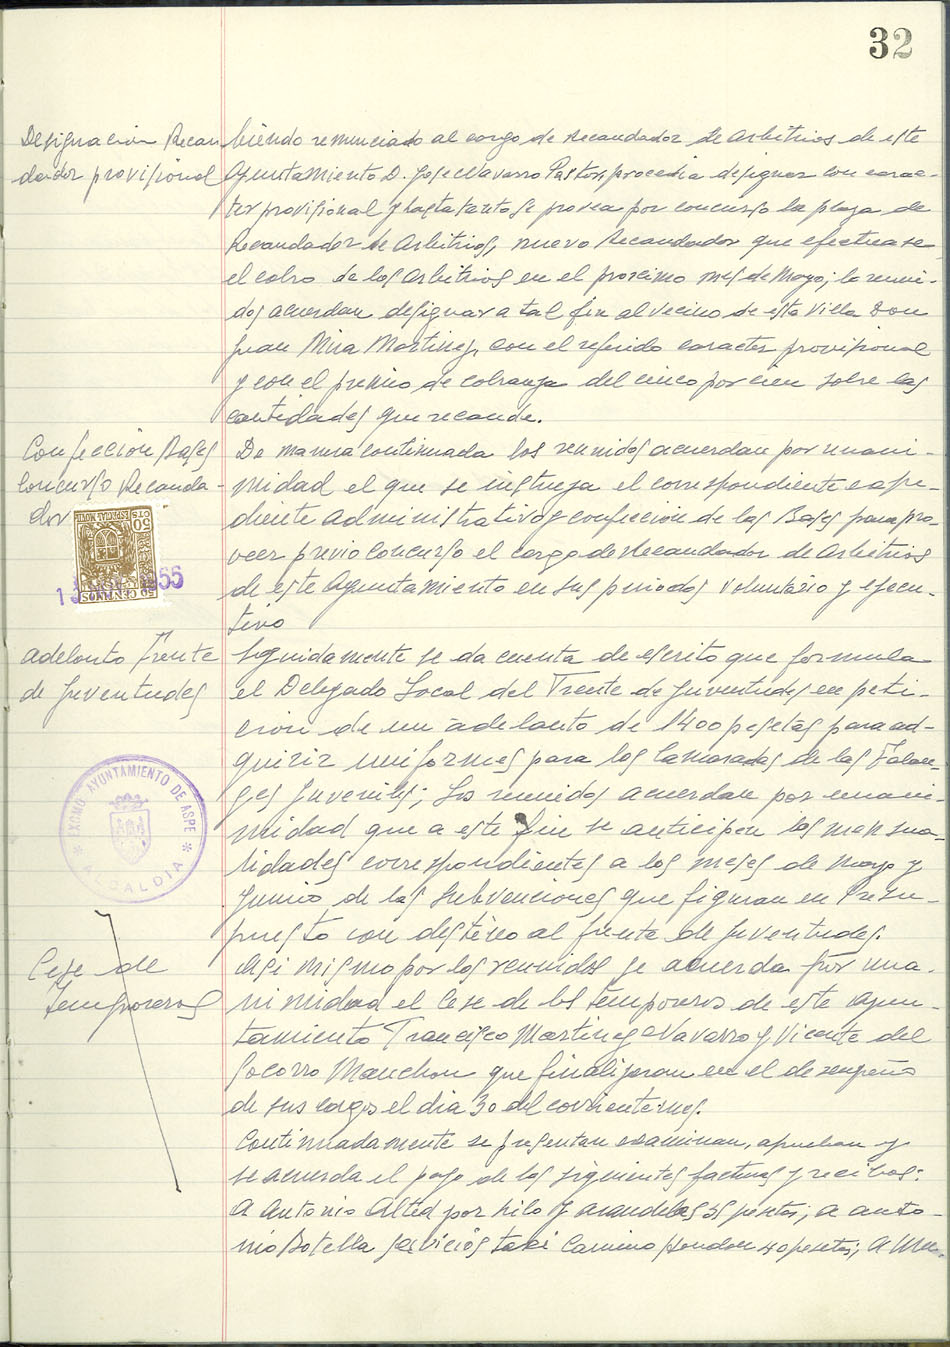 32
Designacion Recau
dador provisional
biendo renunciado al cargo de Recaudador de Arbitrios de este
Ayuntamiento D. Jose Navarro Pastor, procedia designar con carac-
ter provisional y hasta tanto se provea por concurso la plaza de
Recaudador de Arbitrios, nuevo Recaudador que efectuase
el cobro de los Arbitrios en el proximo mes de Mayo; lo reuni-
dos acuerdan designar a tal fin al vecino de esta Villa Don
Juan Mira Martinez, con el referido caracter provisional
y con el premio de cobranza del cinco por cien sobre las
cantidades que recaude.
Confección Bases
Concurso Recauda-
dor
De manera continuada los reunidos acuerdan por unani-
midad el que se instruya el correspondiente expe-
diente administrativo y confeccion de las Bases para pro-
veer previo concurso el cargo de Recaudador de Arbitrios
de este Ayuntamiento en sus periodos voluntario y ejecu-
tivo
50
CTS
ESPECIAL MOVIL
50 CENTIMOS
55
adelanto Frente
de Juventudes
Seguidamente se da cuenta de escrito que formula
el Delegado Local del Frente de Juventudes en peti-
cion de un adelanto de 1400 pesetas para ad-
quirir uniformes para los Camaradas de las Falan-
ges Juveniles; Los reunidos acuerdan por unani-
midad que a este fin se anticipen las mensua-
lidades correspondientes a los meses de Mayo y
Junio de las subvenciones que figuran en Presu-
puesto con destino al frente de Juventudes.
EXCMO. AYUNTAMIENTO DE ASPE
ALCALDIA
Cese de
Temporeros
Asi mismo por los reunidos se acuerda por una-
nimidad el Cese de los temporeros de este Ayun-
tamiento Francisco Martinez Navarro y Vicente del
Socorro Manchon que finalizaran en el desempeño
de sus cargos el dia 30 del corriente mes.
Continuadamente se presentan examinan, aprueban y
se acuerda el pago de los siguientes facturas y recibos:
A Antonio Alted por hilo y arandelas 35 pesetas; a Anto-
nio Botella servicios taxi Camino Hondon 40 pesetas; A